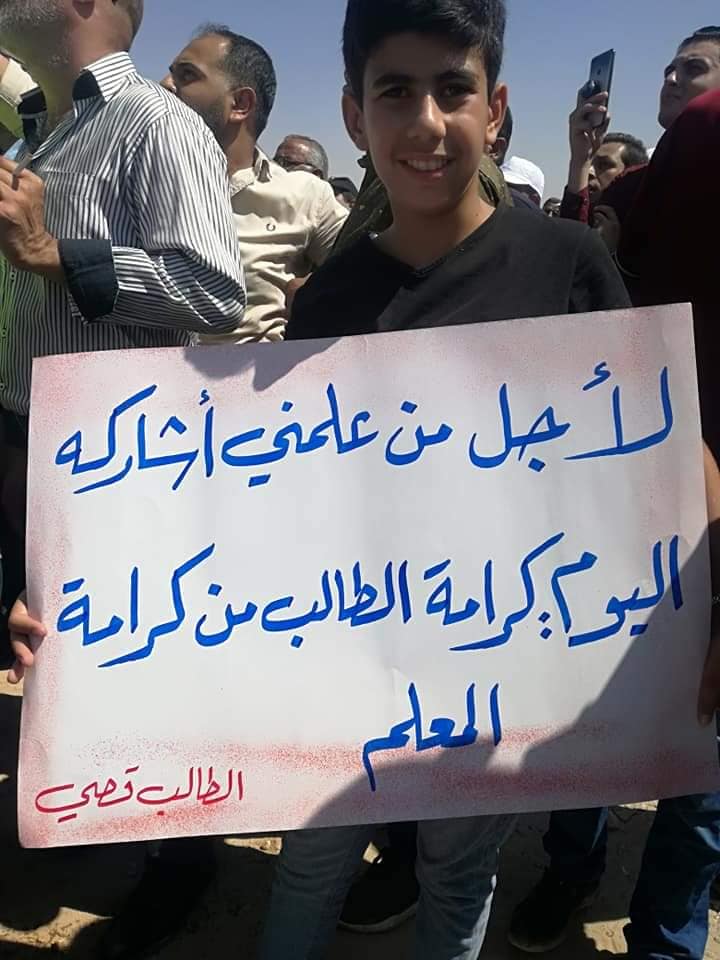 لأجل من علمني أشاركه
اليوم: كرامة الطالب من كرامة
المعلم
الطالب قصي